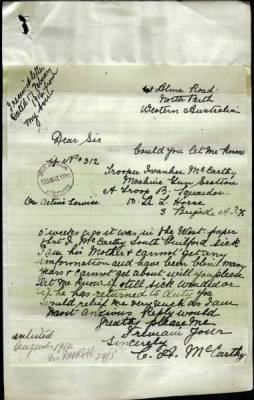 Alma Road
North Perth
Western Australia
Dear Sir
Could you let me know
No 312
Trooper Ivanhoe McCarthy
Machine Gun Section
A Troop B Squadron
10 A L Horse
3 Brigade A I F
On Active Service
5 weeks ago it was in the West paper
that I McCarthy South Guilford sick
I am his Mother & cannot get any
information and have been blind many
years & cannot get about will you please
let me know if still sick wounded or
he has returned to duty you
would relieve me very much as I am
most anxious Reply would
greatly please me
I remain Your
Sincerely
C. A. McCarthy
enlisted
August 1914
my son